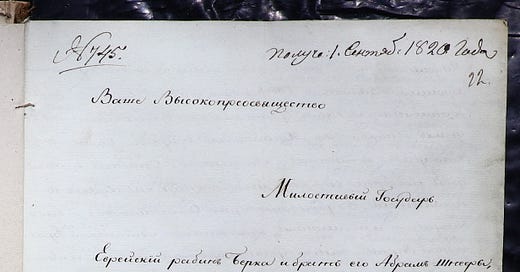 № 745.
Получ: 1. Сентяб: 1820 Года
22.
Ваше Высокопреосвященство
Милостивый Государь
Еврейский рабинъ Берка и братъ его Абрамъ